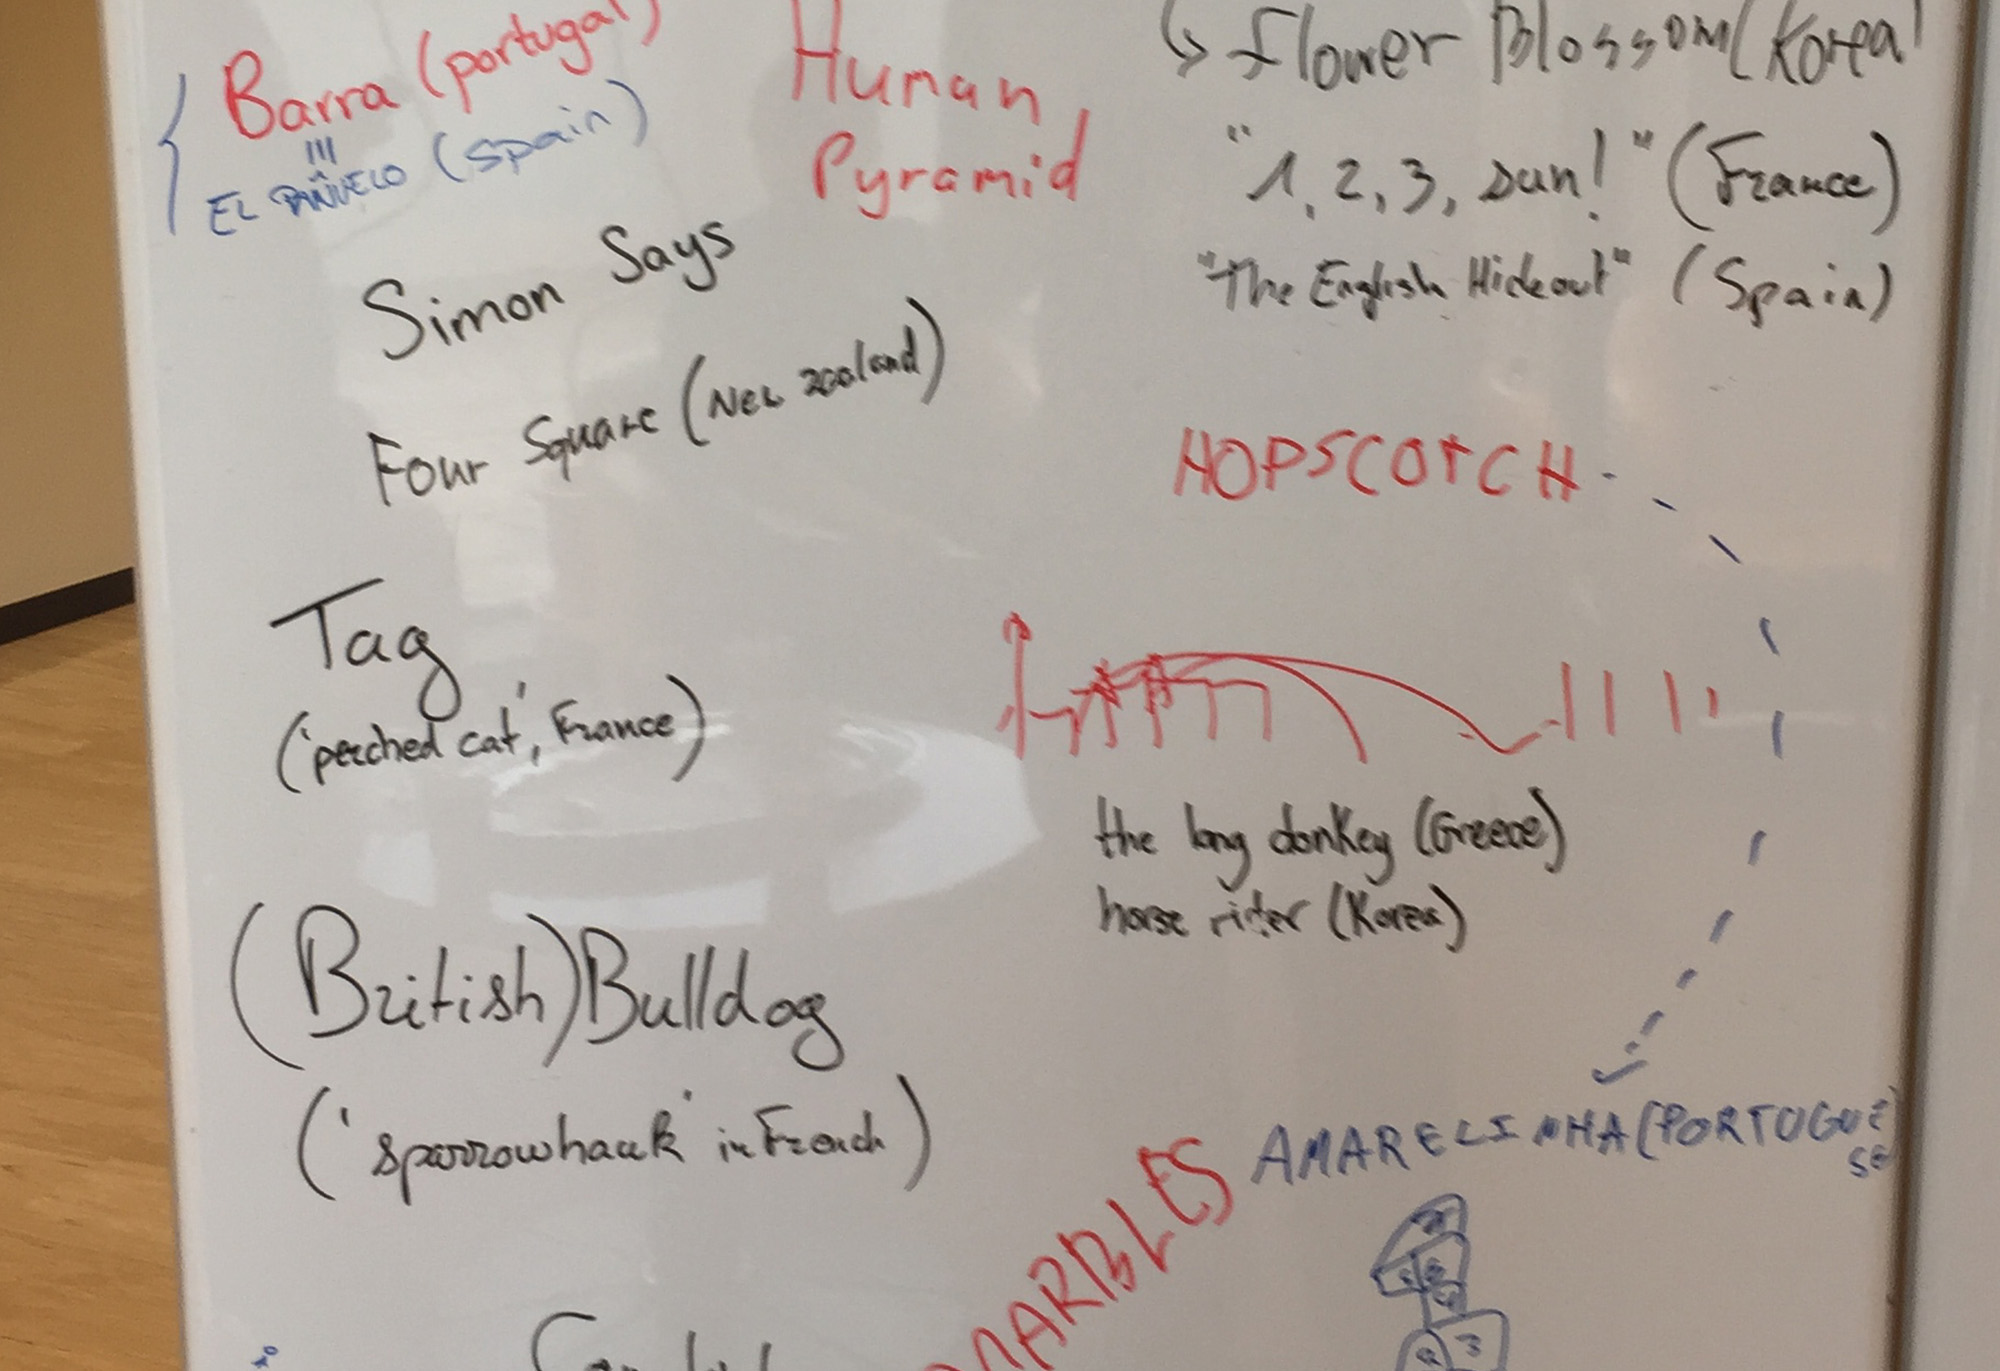 Barra (portugal)
EL PAÑUELO (Spain)
Human
Pyramid
↳ Flower Blossom (Korea)
"1, 2, 3, sun!" (France)
"The English Hideout" (Spain)
Simon Says
Four Square (New Zealand)
HOPSCOTCH
Tag
('perched cat', France)
the long donkey (Greece)
horse rider (Korea)
(British) Bulldog
('sparrowhawk' in French)
AMARELINHA (PORTUGUE
SE
MARBLES
3